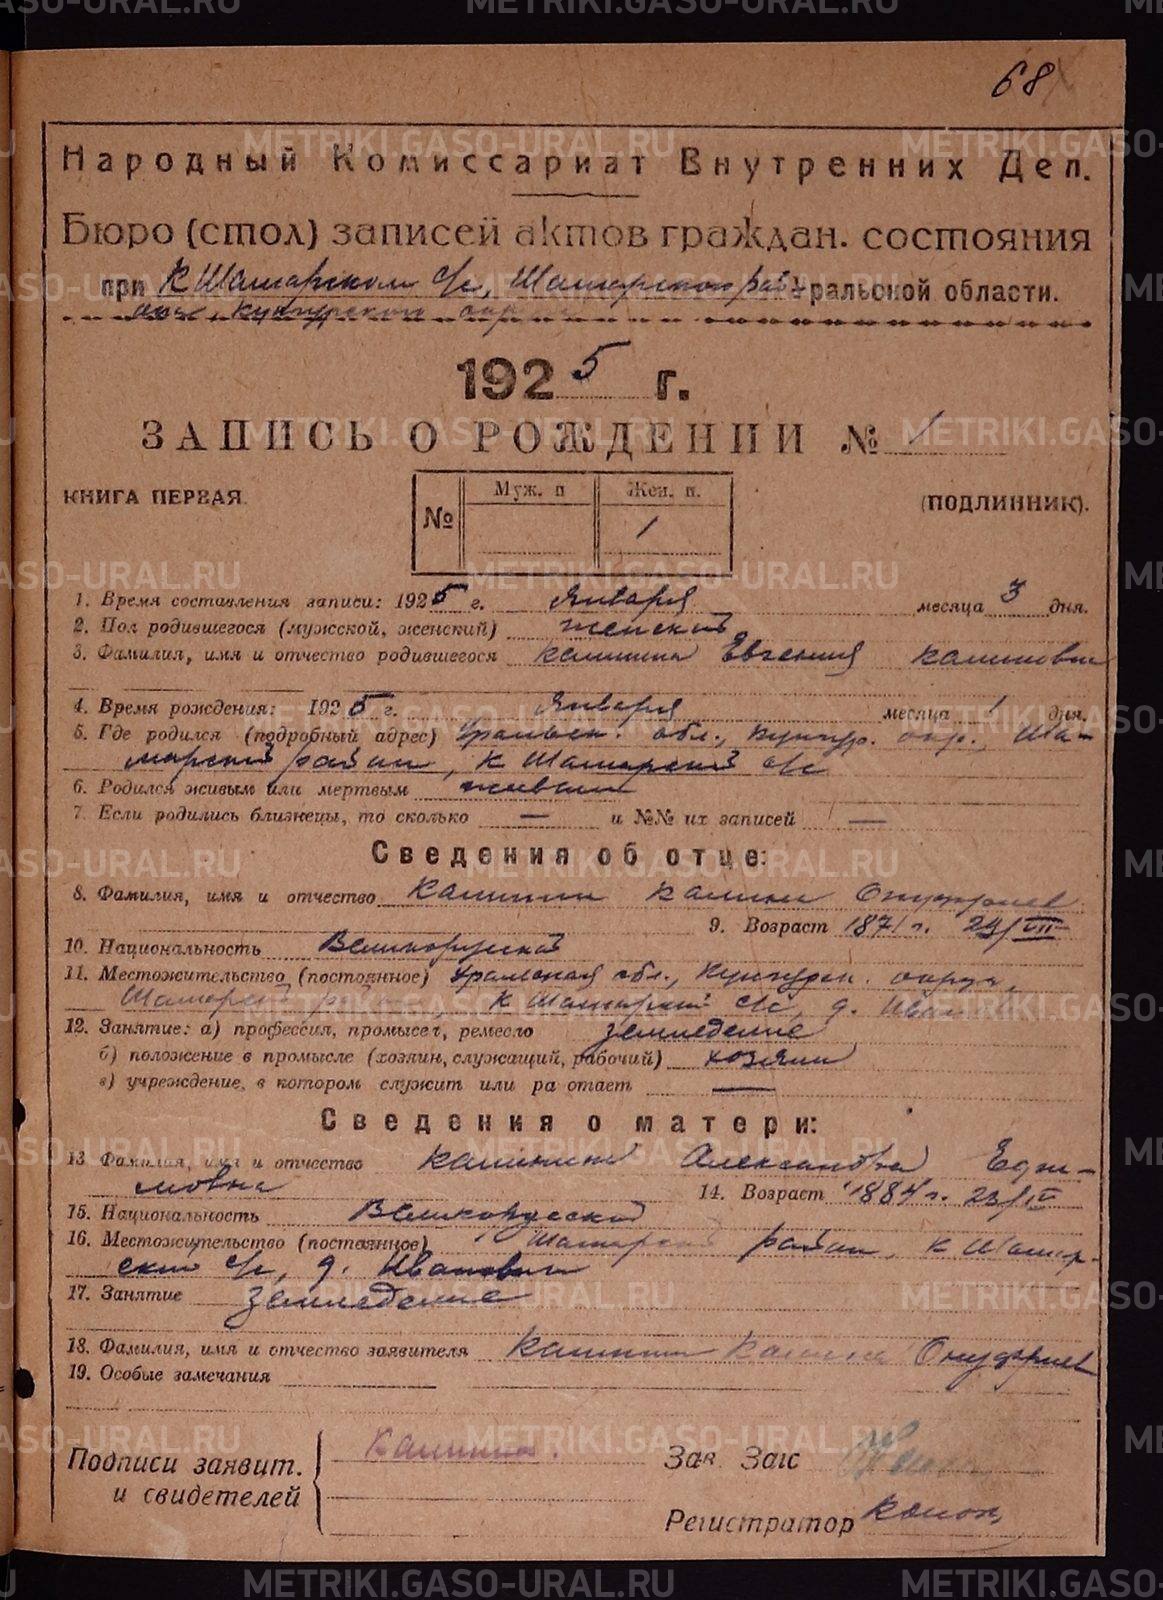 METRIKI.GASO-URAL.RU
68
Народный Комиссариат Внутренних Дел.
Бюро (стол) записей актов граждан. состояния
при К Шамарском с/с, Шамарского рай- Уральской области.
она, Кунгурского окр
1925 г.
ЗАПИСЬ О РОЖДЕНИИ № 1
КНИГА ПЕРВАЯ. (ПОДЛИННИК).
№ Муж. п Жен. п.
1
1. Время составления записи: 1925 г. Января месяца 3 дня.
2. Пол родившегося (мужской, женский) женский
3. Фамилия, имя и отчество родившегося Калинина Евгения Калиновна
4. Время рождения: 1925 г. Января месяца 1 дня.
5. Где родился (подробный адрес) Уральск. обл., Кунгур. окр., Ша-
марский район, К Шамарский с/с
6. Родился живым или мертвым живым
7. Если родились близнецы, то сколько — и №№ их записей —
Сведения об отце:
8. Фамилия, имя и отчество Калинин Калина Онуфриев
9. Возраст 1871 г. 29/VII
10. Национальность Великорусской
11. Местожительство (постоянное) Уральская обл., Кунгурск. округа,
Шамарский район, К Шамарский с/с, д. Ивановка
12. Занятие: а) профессия, промысел, ремесло земледелие
б) положение в промысле (хозяин, служащий, рабочий) хозяин
в) учреждение, в котором служит или ра отает —
Сведения о матери:
13 Фамилия, имя и отчество Калинина Александра Ефи-
мовна 14. Возраст 1884 г. 23/IV
15. Национальность Великорусской
16. Местожительство (постоянное) Шамарский район, К Шамар-
ский с/с, д. Ивановка
17. Занятие земледелие
18. Фамилия, имя и отчество заявителя Калинин Калина Онуфриев
19. Особые замечания
Подписи заявит. Калинин. Зав. Загс
и свидетелей
Регистратор